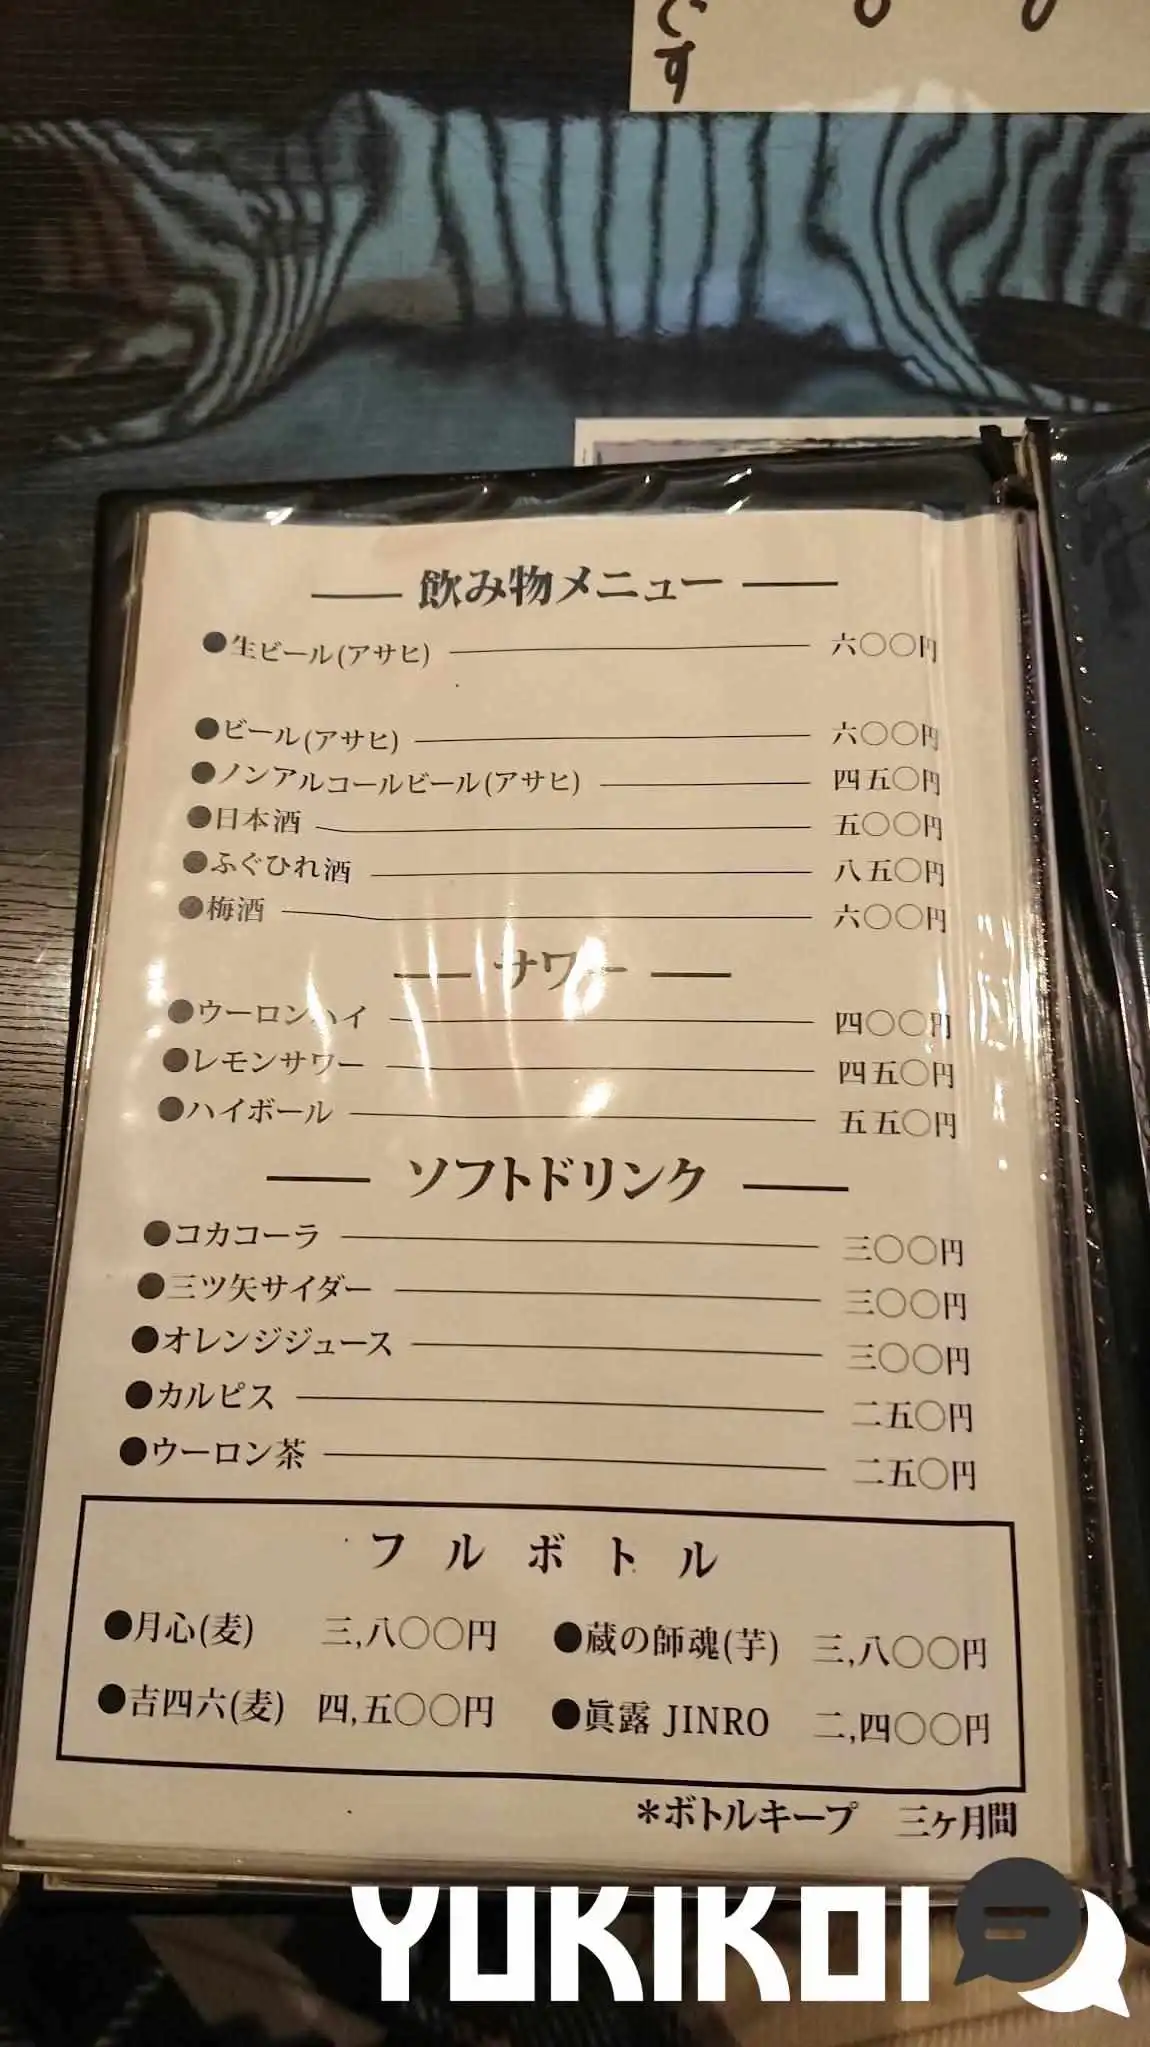 です
飲み物メニュー
●生ビール(アサヒ) 六〇〇円
●ビール(アサヒ) 六〇〇円
●ノンアルコールビール(アサヒ) 四五〇円
●日本酒 五〇〇円
●ふぐひれ酒 八五〇円
●梅酒 六〇〇円
サワー
●ウーロンハイ 四〇〇円
●レモンサワー 四五〇円
●ハイボール 五五〇円
ソフトドリンク
●コカコーラ 三〇〇円
●三ツ矢サイダー 三〇〇円
●オレンジジュース 三〇〇円
●カルピス 二五〇円
●ウーロン茶 二五〇円
フルボトル
●月心(麦) 三,八〇〇円 ●蔵の師魂(芋) 三,八〇〇円
●吉四六(麦) 四,五〇〇円 ●眞露 JINRO 二,四〇〇円
*ボトルキープ 三ヶ月間
YUKIKOI